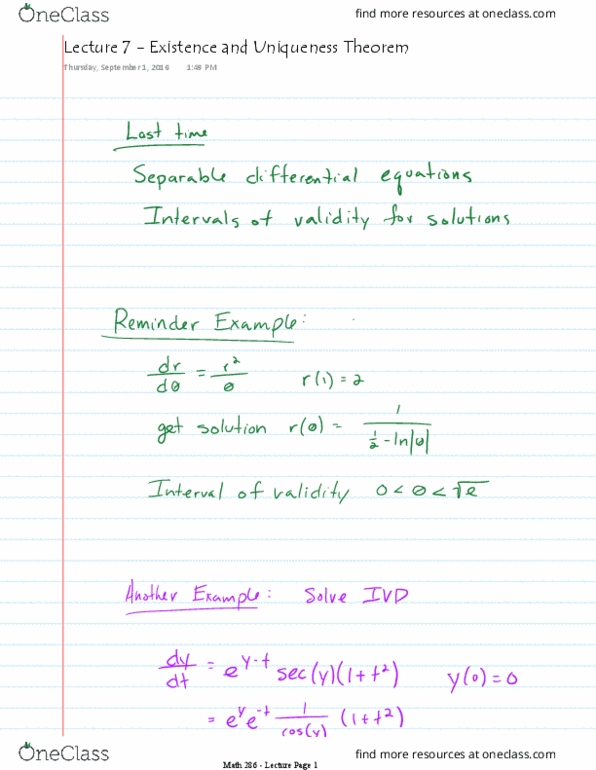 OneClass
find more resources at oneclass.com
Lecture 7 - Existence and Uniqueness Theorem
Thursday, September 1, 2016 1:48 PM
Last time
Separable differential equations
Intervals of validity for solutions
Reminder Example:
dr/dθ = r²/θ r(1) = 2
get solution r(θ) = 1/(1/2 - ln|θ|)
Interval of validity 0 < θ < √e
Another Example: Solve IVP
dy/dt = e^(y-t) sec(y)(1+t²) y(0) = 0
= e^y e^-t 1/cos(y) (1+t²)
OneClass
find more resources at oneclass.com
Math 286 - Lecture Page 1